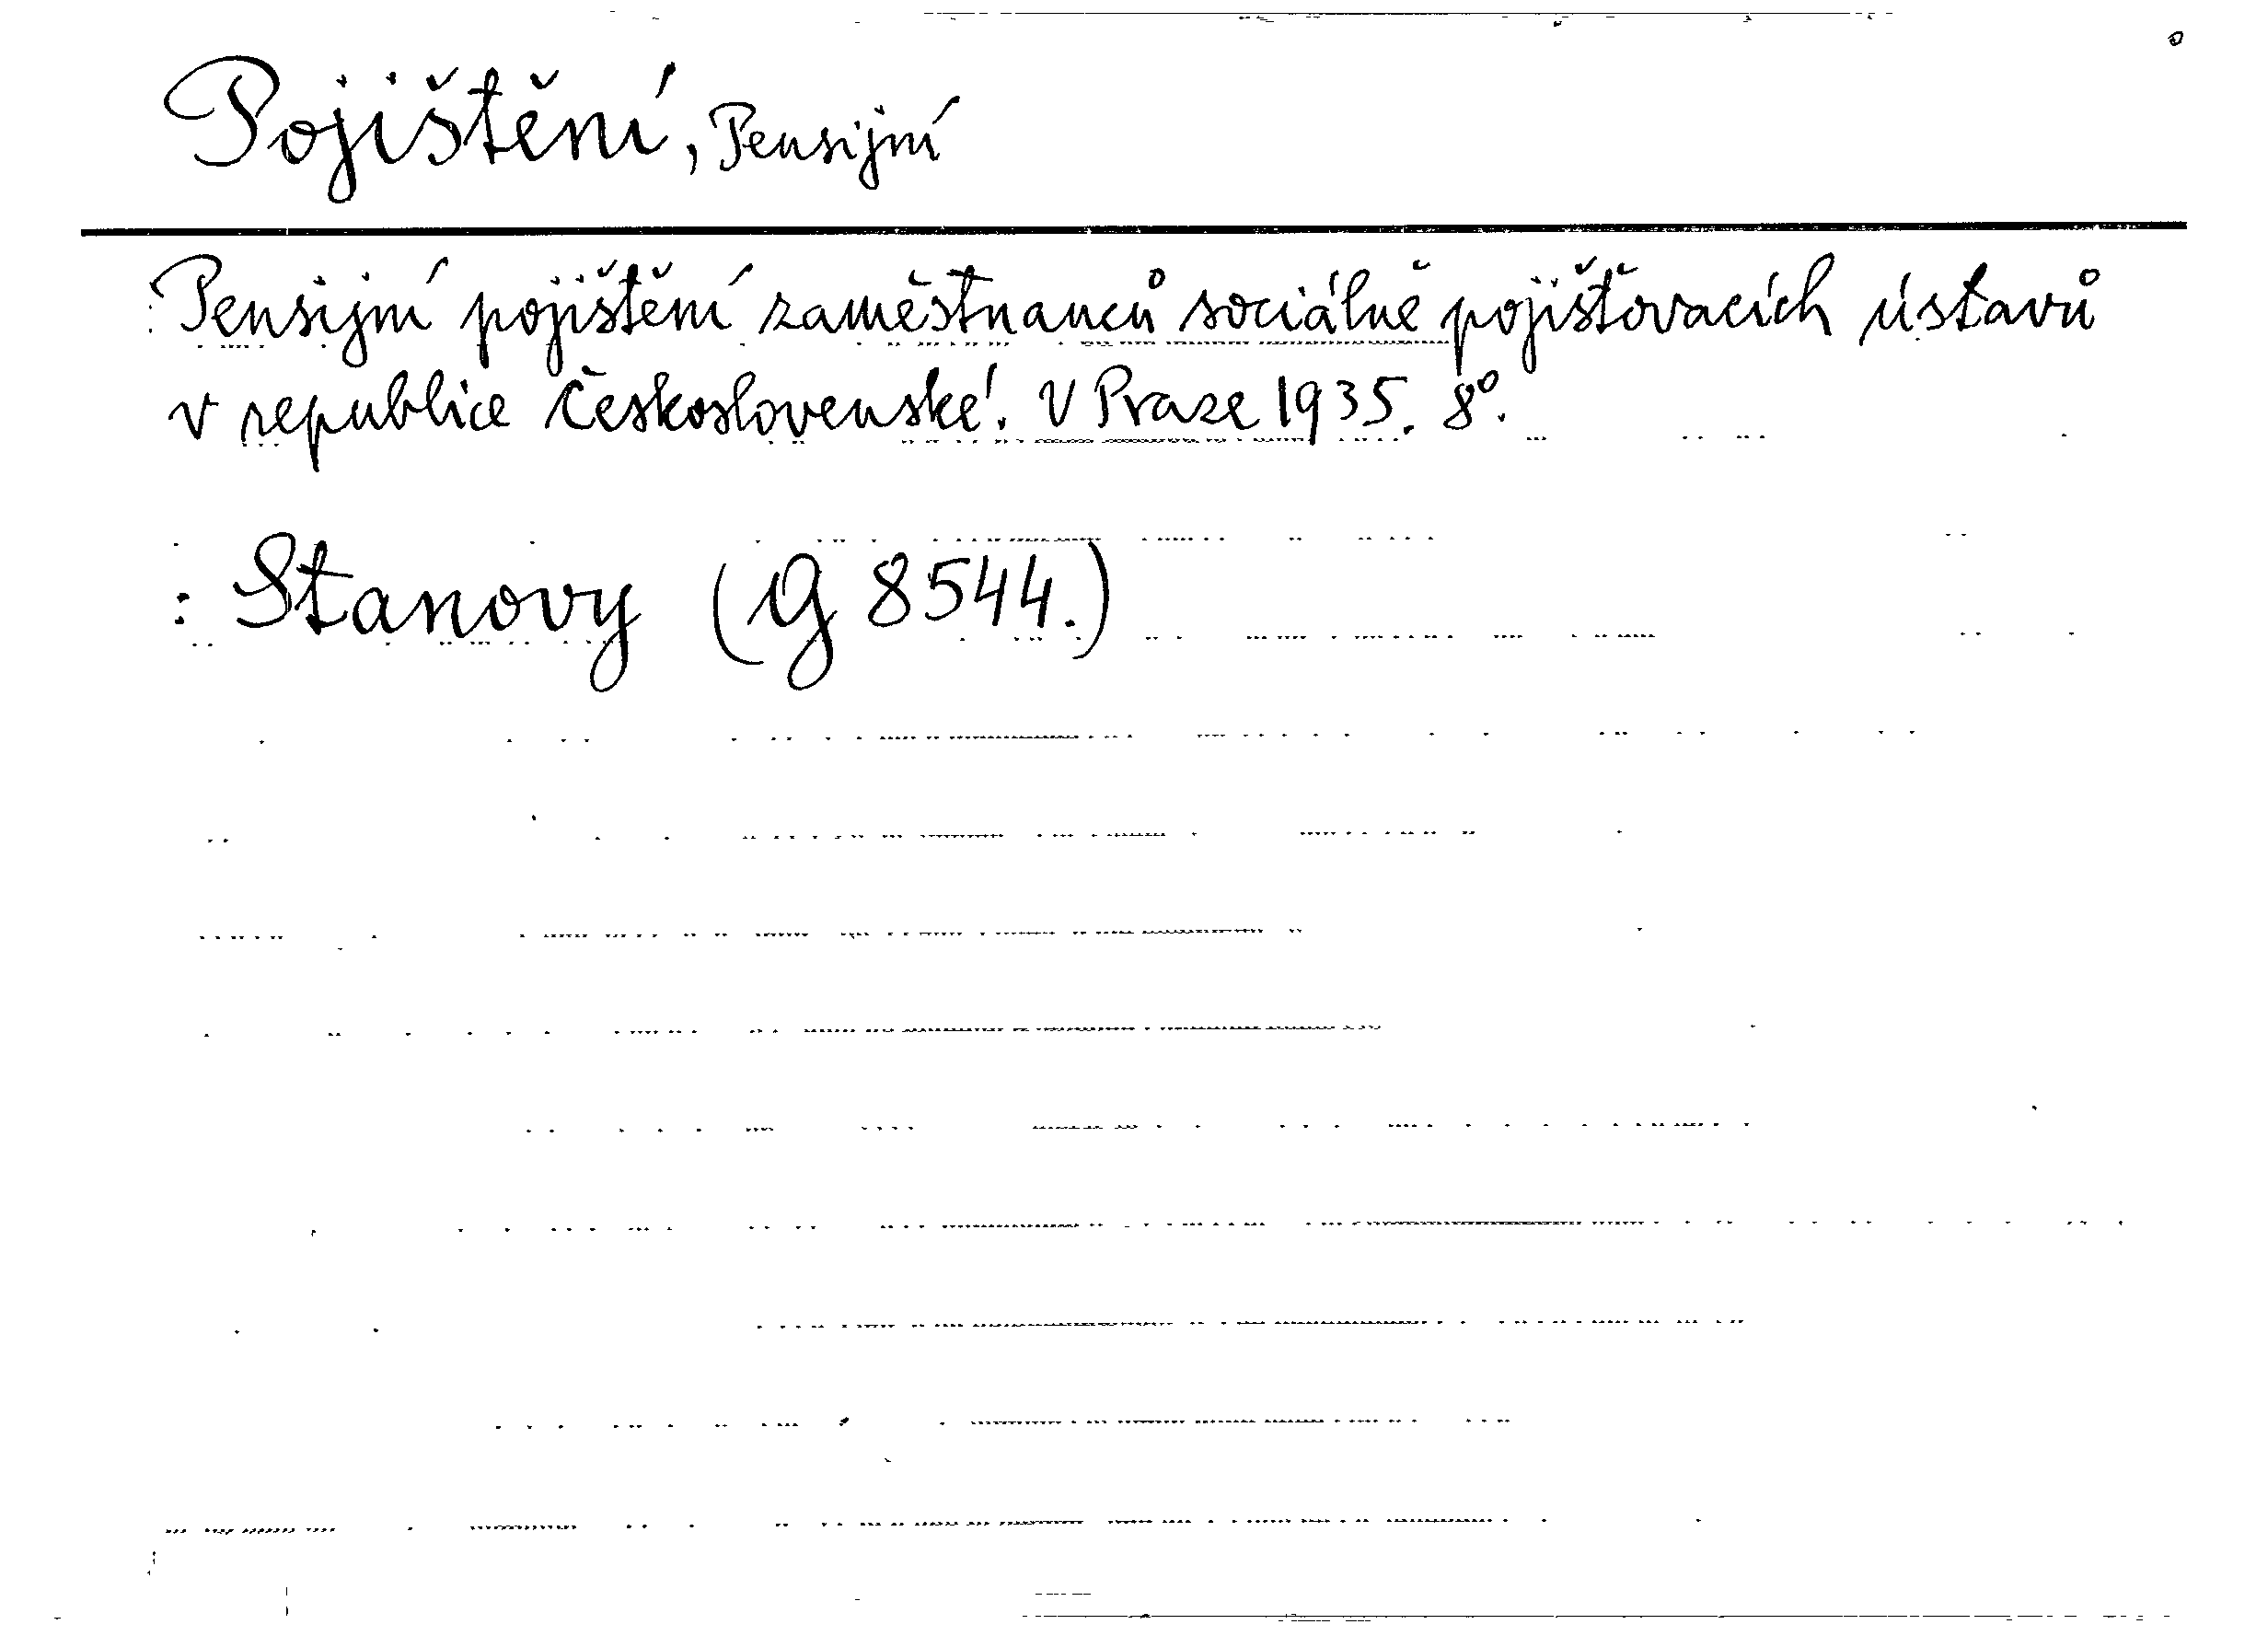 Pojištění, Pensijní
Pensijní pojištění zaměstnanců sociálně pojišťovacích ústavů
v republice Československé. V Praze 1935. 8°.
: Stanovy (G 8544.)